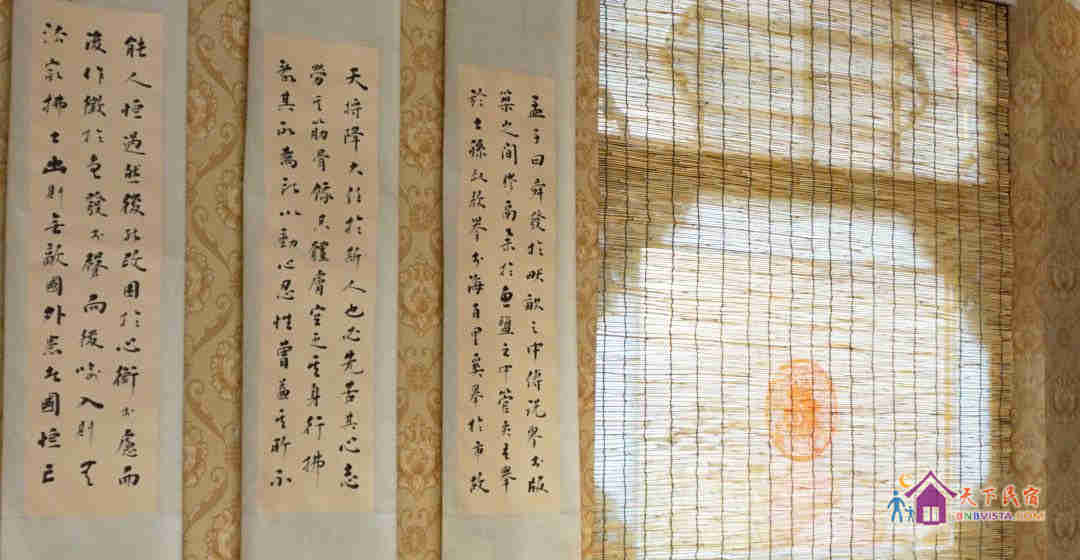 孟子曰舜發於畎畝之中傅說舉於版
築之間膠鬲舉於魚鹽之中管夷吾舉
於士孫叔敖舉於海百里奚舉於市故
天將降大任於斯人也必先苦其心志
勞其筋骨餓其體膚空乏其身行拂
亂其所為所以動心忍性曾益其所不
能人恒過然後能改困於心衡於慮而
後作徵於色發於聲而後喻入則無
法家拂士出則無敵國外患者國恒亡
天下民宿
BNBVISTA.COM